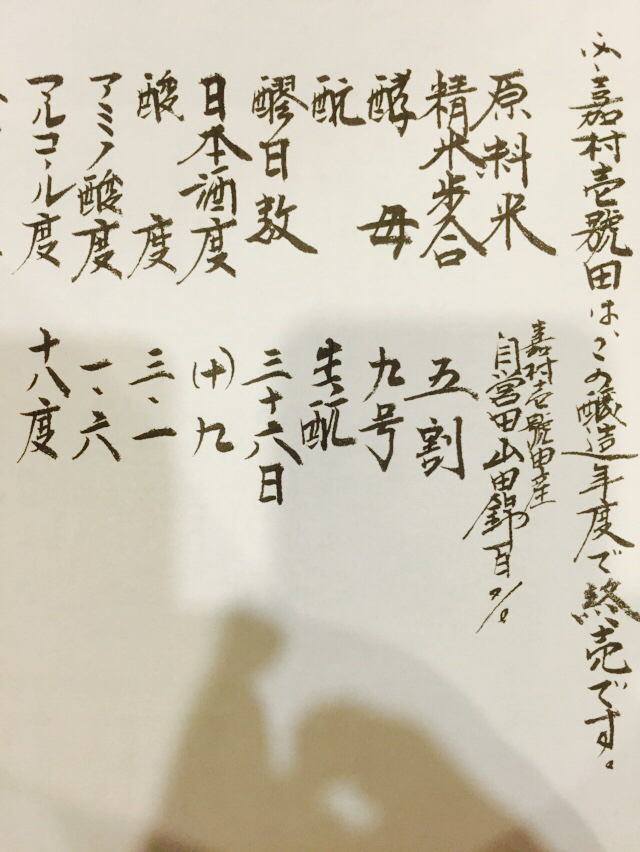 嘉村壱號田は、この醸造年度で終売です。
原料米 嘉村壱號田産
自営田山田錦百%
精米歩合 五割
酵母 九号
酛 生酛
醪日数 三十六日
日本酒度 (十)九
酸度 三・一
アミノ酸度 一・六
アルコール度 十八度